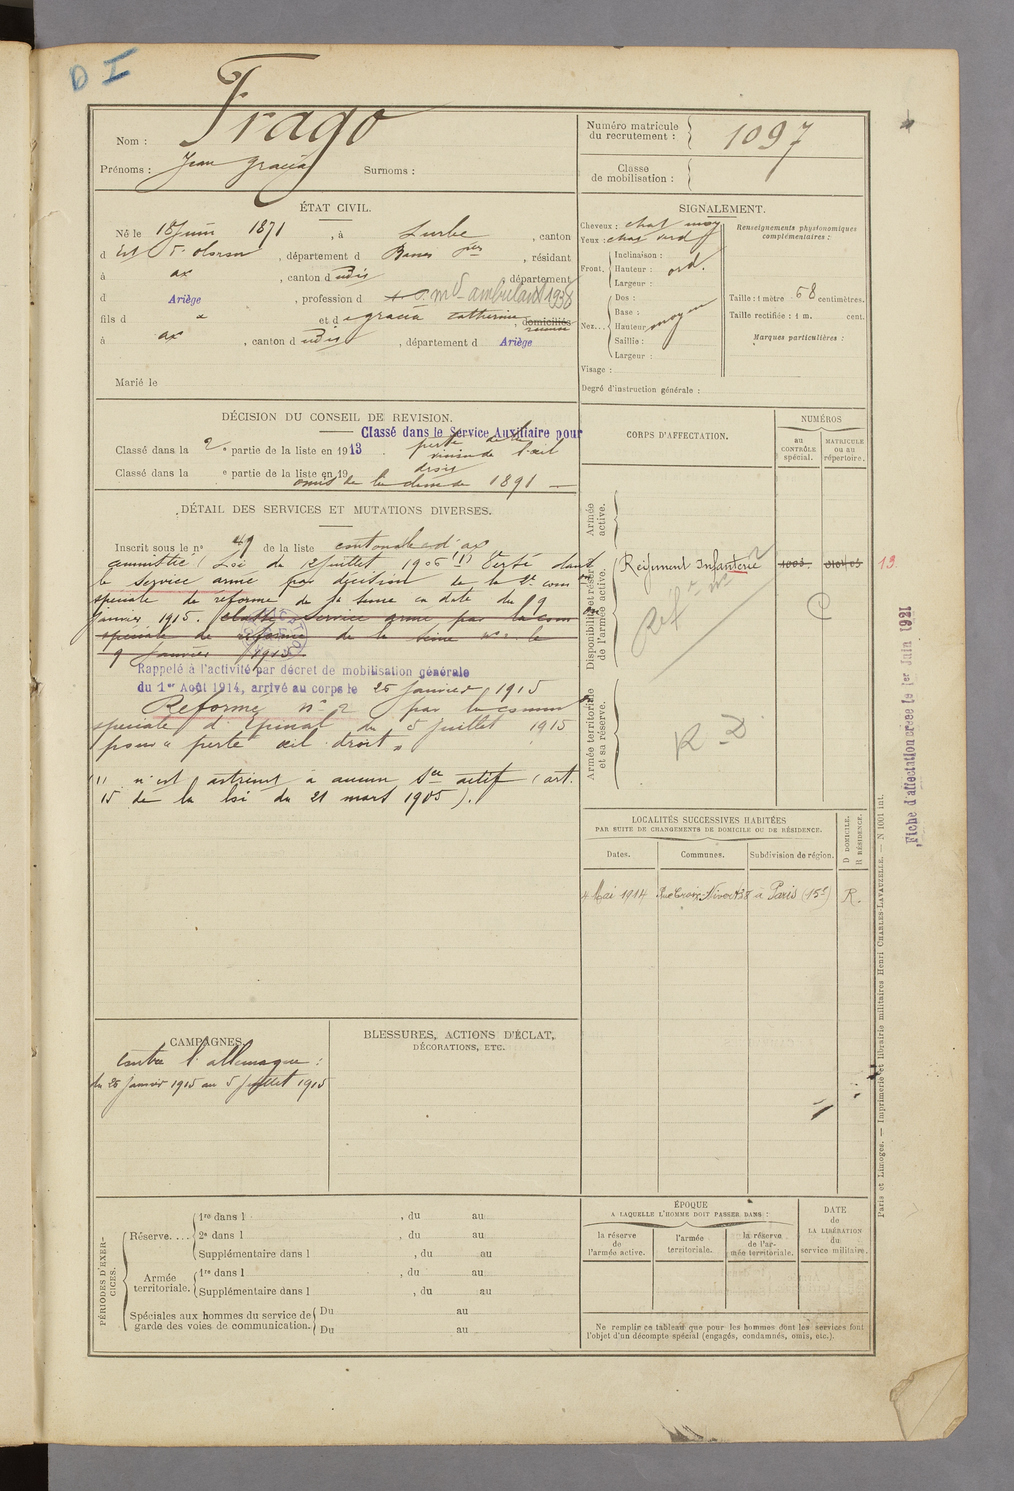 D I
Frago
Nom :
Prénoms : Jean Gracia Surnoms :
Numéro matricule
du recrutement :
1097
Classe
de mobilisation :
ÉTAT CIVIL.
Né le 18 Juin 1871, à Lurbe, canton
d Est d'Oloron, département d Basses Pées, résidant
à ax, canton d udis, département
d Ariège, profession d md ambulant 1938
fils d x et d gracia Catherine, domiciliés
à ax, canton d udis, département d Ariège
Marié le
SIGNALEMENT.
Cheveux : chat moy
Yeux : chat verd
Front. Inclinaison :
Hauteur : ord.
Largeur :
Nez... Dos :
Base :
Hauteur moyen
Saillie :
Largeur :
Visage :
Degré d'instruction générale :
Renseignements physionomiques
complémentaires :
Taille : 1 mètre 58 centimètres.
Taille rectifiée : 1 m. cent.
Marques particulières :
DÉCISION DU CONSEIL DE REVISION.
Classé dans le Service Auxiliaire pour
Classé dans la 2e partie de la liste en 1913. perte de la
vision de l'œil
droit
Classé dans la e partie de la liste en 19
omis de la classe de 1891
DÉTAIL DES SERVICES ET MUTATIONS DIVERSES.
Inscrit sous le no 49 de la liste cantonale d'ax
amnistié (Loi de 12 juillet 1906 (1) Versé dans
le service armé par décision de la 2e comon
spéciale de réforme de la Seine en date du 9
janvier 1915. classé service armé par la com
spéciale de réforme de la Seine no 2 le
9 Janvier 1915.
Rappelé à l'activité par décret de mobilisation générale
du 1er Août 1914, arrivé au corps le 26 Janvier 1915
Réformé no 2 par la common
spéciale d'Epinal du 5 juillet 1915
pour « perte œil droit »
(1) n'est astreint à aucun Sce actif (art.
15 de la loi du 21 mars 1905).
CORPS D'AFFECTATION.
NUMÉROS
au
CONTRÔLE
spécial.
MATRICULE
ou au
répertoire.
Armée
active.
Disponibilité et réserve
de l'armée active.
Régiment Infanterie
13
Réf
Armée territoriale
et sa réserve.
R D
LOCALITÉS SUCCESSIVES HABITÉES
PAR SUITE DE CHANGEMENTS DE DOMICILE OU DE RÉSIDENCE.
Dates. Communes. Subdivision de région. D DOMICILE. R RÉSIDENCE.
4 Mai 1914 Rue Croix-Nivert à Paris (15e) R.
CAMPAGNES.
Contre l'allemagne :
du 26 janvier 1915 au 5 juillet 1915
BLESSURES, ACTIONS D'ÉCLAT,
DÉCORATIONS, ETC.
PÉRIODES D'EXERCICES.
Réserve.... 1re dans l , du au
2e dans l , du au
Supplémentaire dans l , du au
Armée
territoriale. 1re dans l , du au
Supplémentaire dans l , du au
Spéciales aux hommes du service de
garde des voies de communication. Du au
Du au
ÉPOQUE
A LAQUELLE L'HOMME DOIT PASSER DANS :
la réserve
de
l'armée active.
l'armée
territoriale.
la réserve
de l'ar-
mée territoriale.
DATE
de
LA LIBÉRATION
du
service militaire.
Ne remplir ce tableau que pour les hommes dont les services font
l'objet d'un décompte spécial (engagés, condamnés, omis, etc.).
Fiche d'affectation créée le 1er Juin 1921
Paris et Limoges. — Imprimerie et librairie militaires Henri CHARLES-LAVAUZELLE. — N 1001 int.